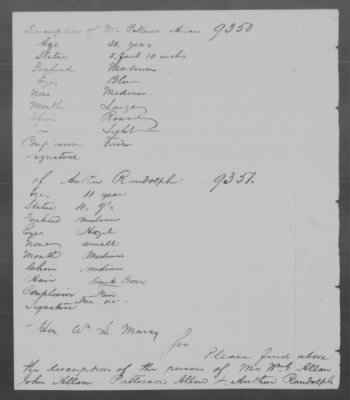 Description of Mr Patterson Allan 9350
Age 21 years
Stature 5 feet 10 inches
Forehead Medium
Eyes Blue
Nose Medium
Mouth Large
Chin Round
Hair Light
Complexion Fair
Signature
of Arthur Randolph 9351.
Age 11 years
Stature 4.
Forehead medium
Eyes Hazel
Nose small
Mouth Medium
Chin medium
Hair Dark Brown
Complexion Fair
Signature
Hon Wm L Marcy
Sir
Please find above
the description of the persons of Mr Wm G Allan
John Allan Patterson Allan & Arthur Randolph